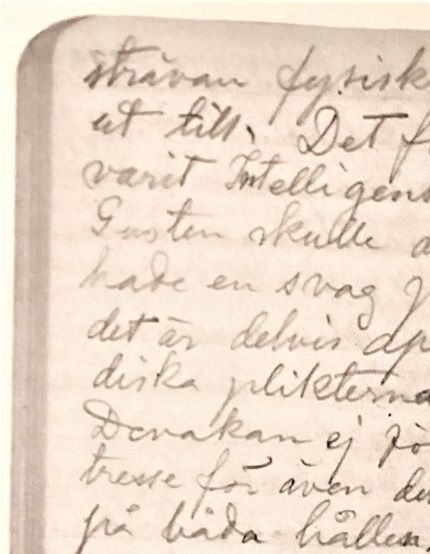 strävan fysisk
ut till. Det f
varit Intelligens
Gusten skulle a
hade en svag
det är delvis ap
diska plikterna
ej fö
tresse för även de
på båda hållen.